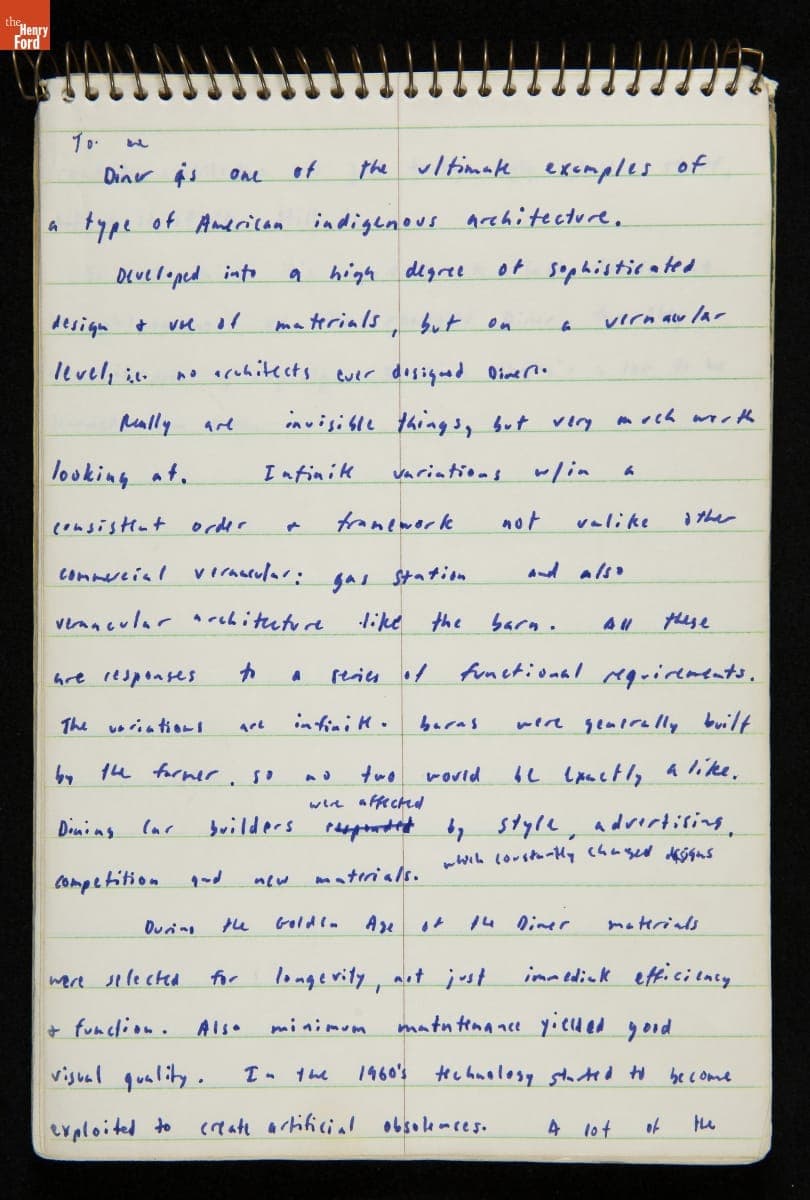 the
Henry
Ford
To me
Diner is one of the ultimate examples of
a type of American indigenous architecture.
Developed into a high degree of sophisticated
design + use of materials, but on a vernacular
level, i.e. no architects ever designed Diners.
Really are invisible things, but very much worth
looking at. Infinite variations w/in a
consistent order + framework not unlike other
commercial vernacular: gas station and also
vernacular architecture like the barn. All these
are responses to a series of functional requirements.
The variations are infinite. barns were generally built
by the farmer, so no two would be exactly alike.
were affected
Dining Car builders responded by style, advertising,
which constantly changed designs
competition and new materials.
During the Golden Age of the Diner materials
were selected for longevity, not just immediate efficiency
+ function. Also minimum maintenance yielded good
visual quality. In the 1960's technology started to become
exploited to create artificial obsolences. A lot of the